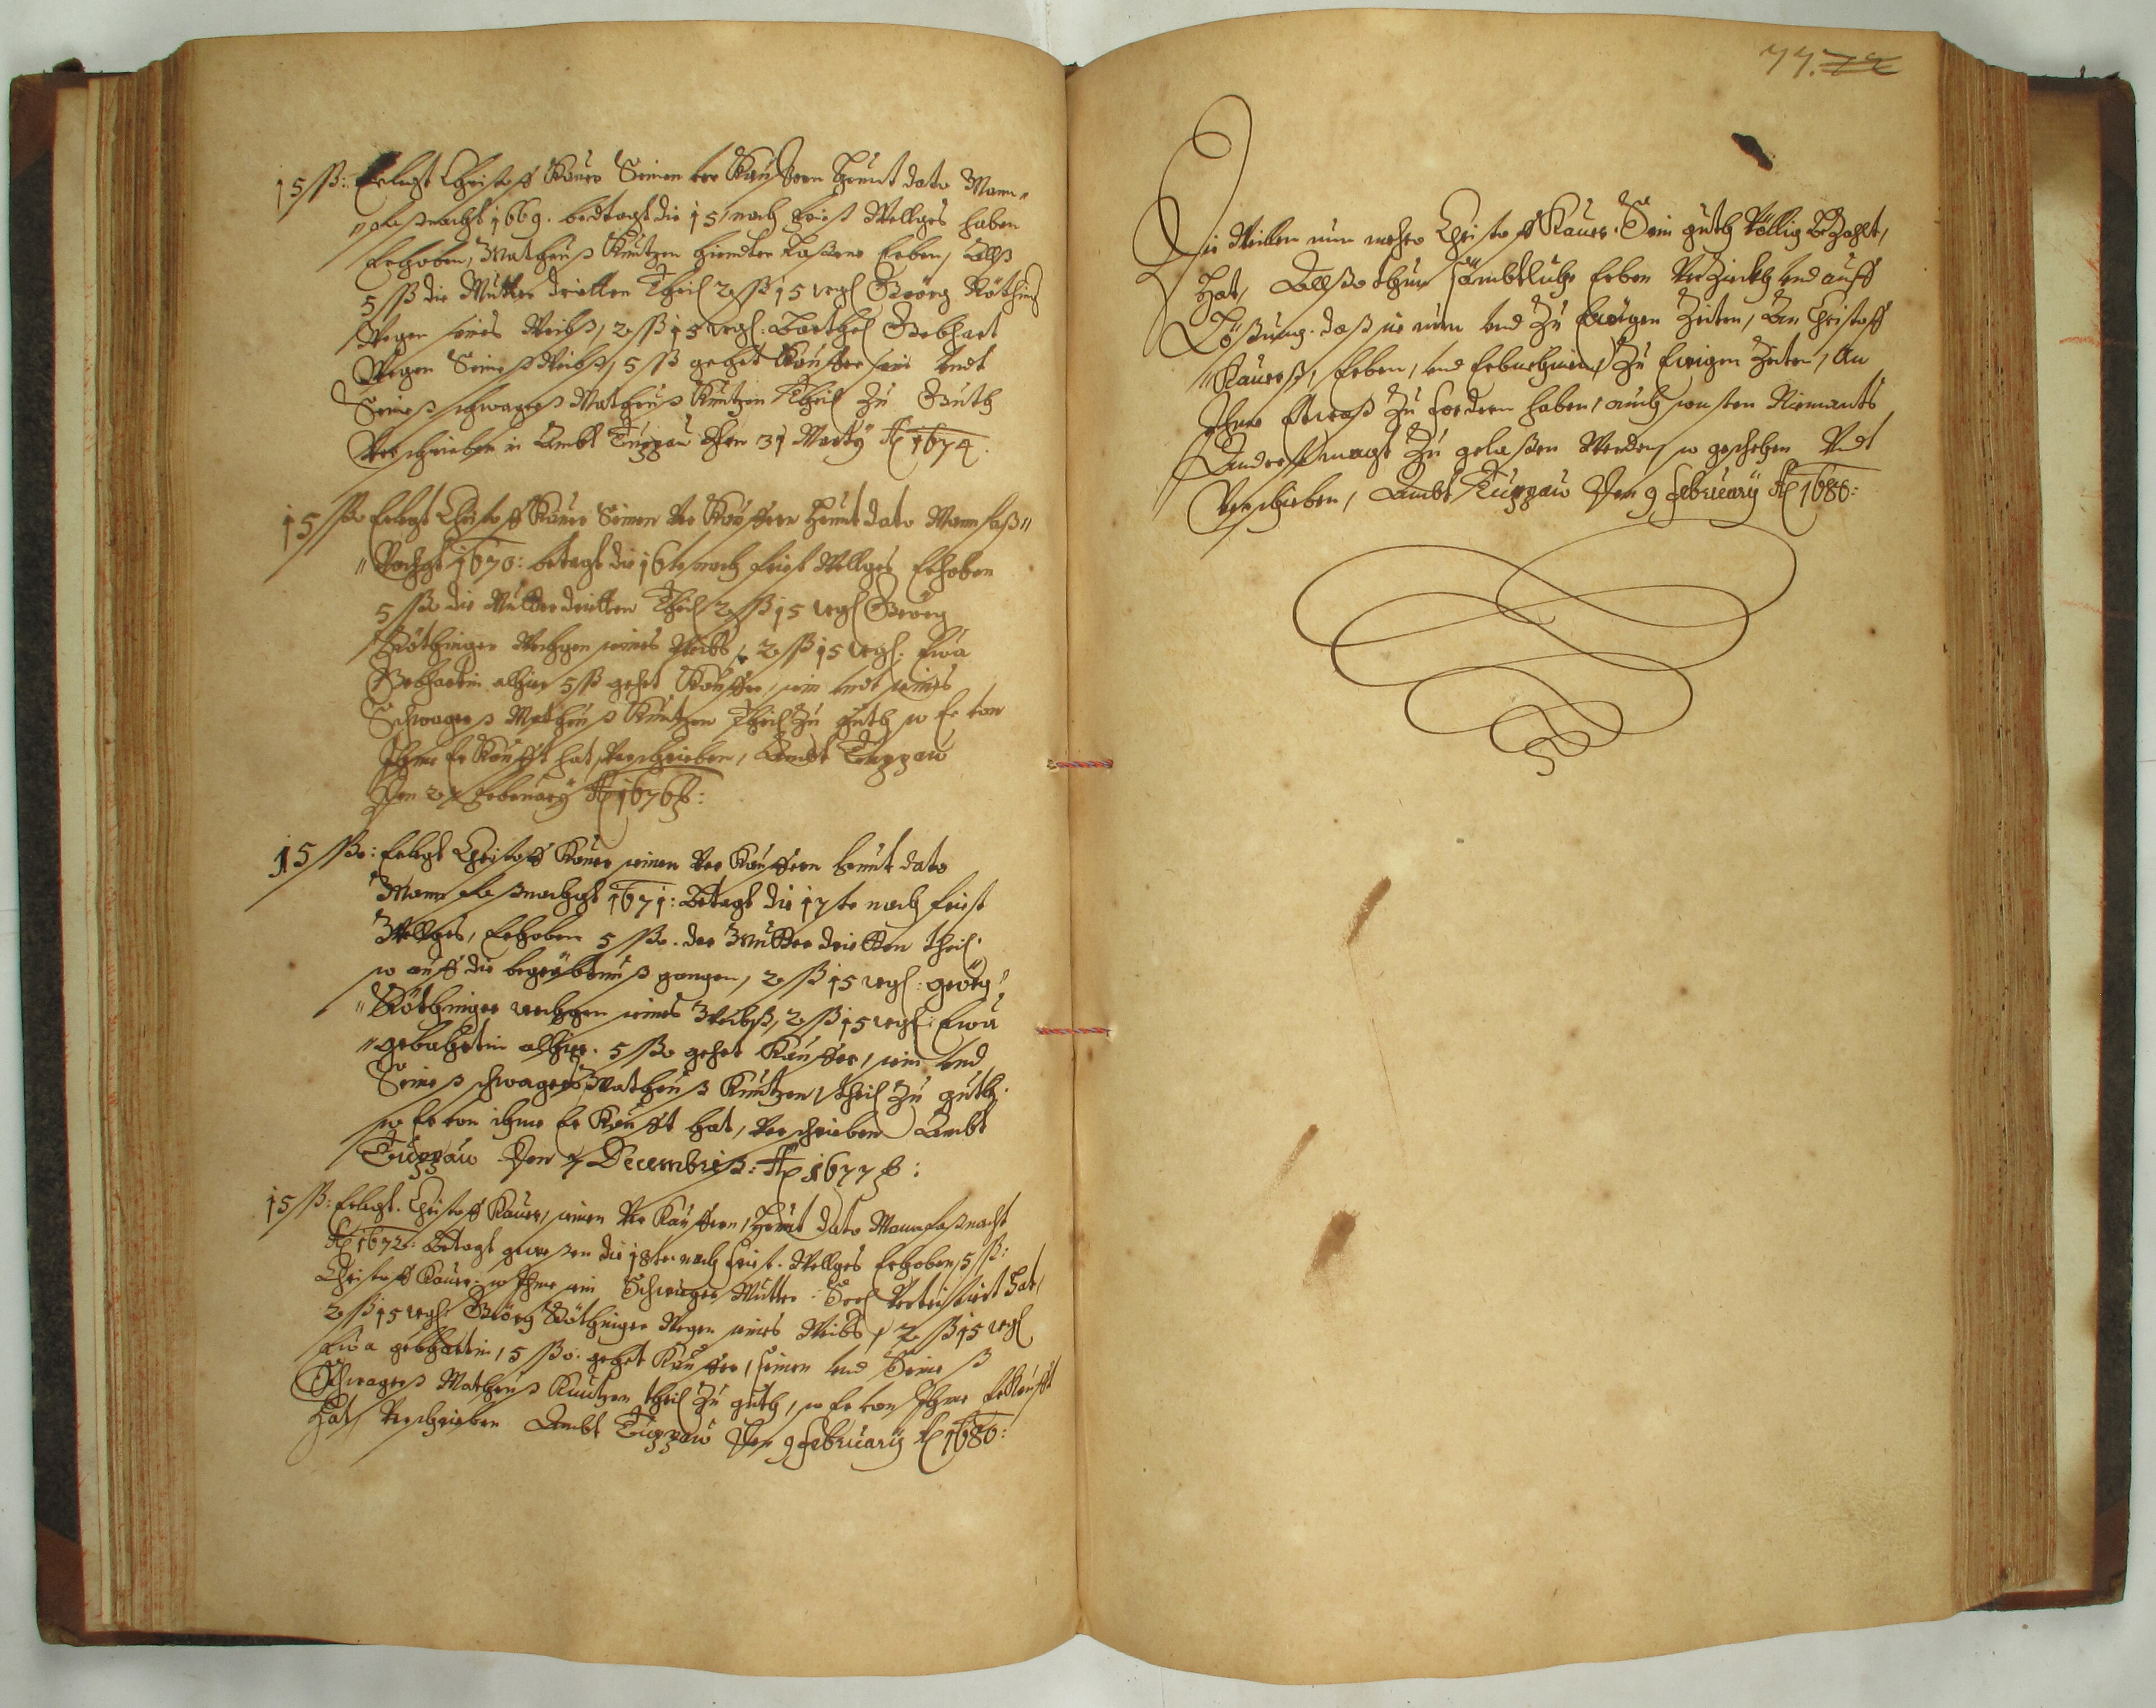 15 ß: Erlegt Christoff Kauer Seinen ver Kauffern Heunt dato Mann„
„faßnacht 1669. bedtagt die 15 nach friest Wellges haben
Erhoben, Matheus Kuntzen hinder Laßene Erben, Allß
5 ß die Mutter dritten Theil 2 ß 15 wgl Geörg Röthing
Wegen seines Weibß, 2 ß 15 wgl. Barthel Gebhart
Wegen Seines Weibß, 5 ß gehet Kauffer sein undt
Seines schwagers Matheus Kuntzen Theil Zu Guth
Verschrieben in Ambt Tuppau den 31 Marty Ao 1674.
15 ßo Erlegt Christoff Kauer Seinen Ver Kauffern Heunt dato Mannfaß„
„Nacht 1670: betagt die 16te nach friest Wellges Erhoben
5 ßo die Mutter dritten Theil 2 ß 15 wgl Geörg
Röthinger Weghen seines Weibs, 2 ß 15 wgl. Ewa
Gebhartin alhier 5 ß gehet Kauffer, sein undt seines
Schwagers Matheus Kuntzen Theil Zu guth so Er von
Ihme Er Kaufft hat, Verschrieben, Ambt Tuppau
Den 27 February Ao 1676:
15 ßo: Erlegt Christoff Kauer seinen Ver Kauffern heunt dato
Mann faßnacht 1671: Betagt die 17te nach friest
Wellges, Erhoben 5 ßo. der Mutter dritten theil
so auff die begräbtnuß gangen, 2 ß 15 wgl: geörg
„Röthinger weghen seines Weibß, 2 ß 15 wgl: Ewa
„gebahrtin alhier. 5 ßo gehet Kauffer, sein und
Seines schwagers Matheus Kuntzen, theil Zu guth.
so Er von ihme Er Kaufft hat, Verschrieben Ambt
Tuppau Den 7 Decembriß: Ao 1677:
15 ß: Erlegt. Christoff Kauer, seinen Ver Kauffern, Heunt dato Mannfaßnacht
Ao 1672: Betagt geweßen die 18te nach friest. Wellges Erhoben 5 ß:
Christoff Kauer. so Ihme sein Schwieger Mutter: Seel Hat,
2 ß 15 wgl Geörg Röthinger Wegen seines Weibs, 2 ß 15 wgl
Ewa gebhartin, 5 ßo. gehet Kauffer, seinen und Seines
Schwagers Matheus Kuntzen theil Zu guth, so Er von Ihme Er Kaufft
Hat, Verschrieben Ambt Tuppau Den 9 February Ao 1680:
77. 72
Die Weillen nun mehro Christoff Kauer. Sein guth Völlig Bezahlt,
Hat, Allßo thun sämbtliche Erben Verzückh und auff
Lößung. daß sie nun und Zu Ewigen Zeiten, An Christoff
„Kauerß, Erben, und Erbnehmen, Zu Ewigen Zeiten, An
Ihme Etwaß Zu fordern haben, auch sonsten Niemants
Anders magt Zu gelaßen Werden so geschehen Undt
Verschrieben, Ambt Tuppau Den 9 February Ao 1680: